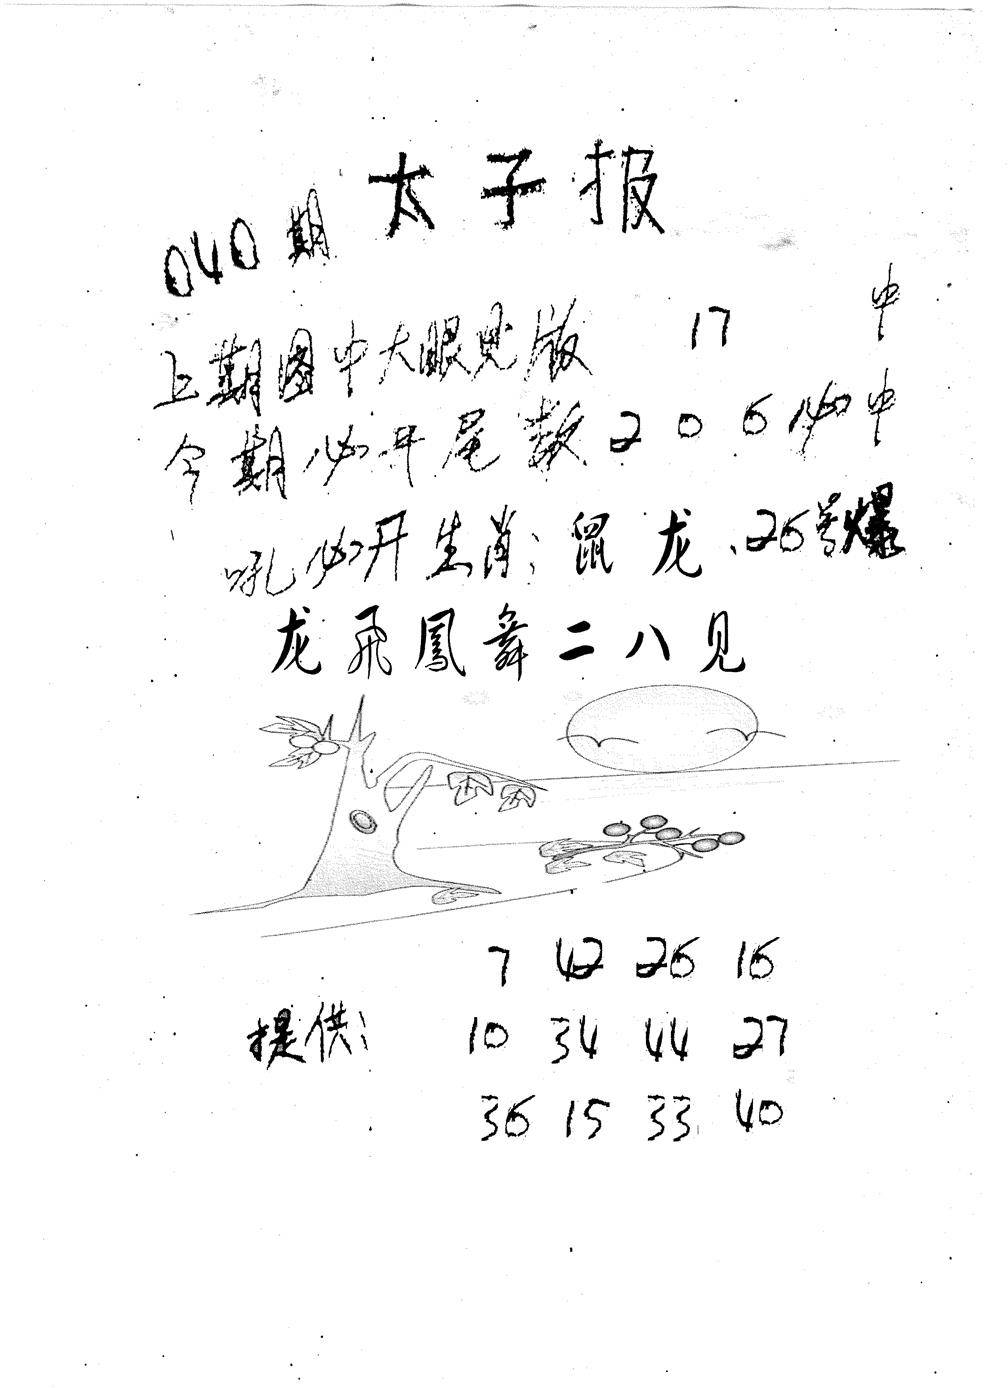 太子报
040期
上期图中大眼见版 17 中
今期必开尾数 2 0 6 必中
吼必开生肖：鼠龙、26号爆
龙飛鳳舞二八见
7 42 26 16
提供： 10 34 44 27
36 15 33 40